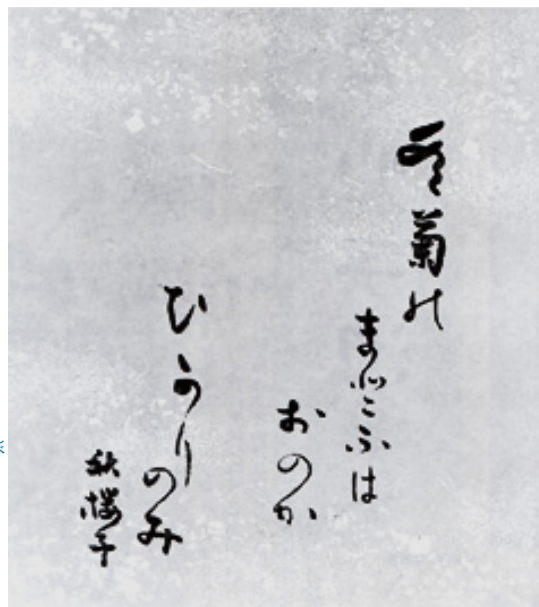 冬菊の
まとふは
おのか
ひかりのみ
秋櫻子